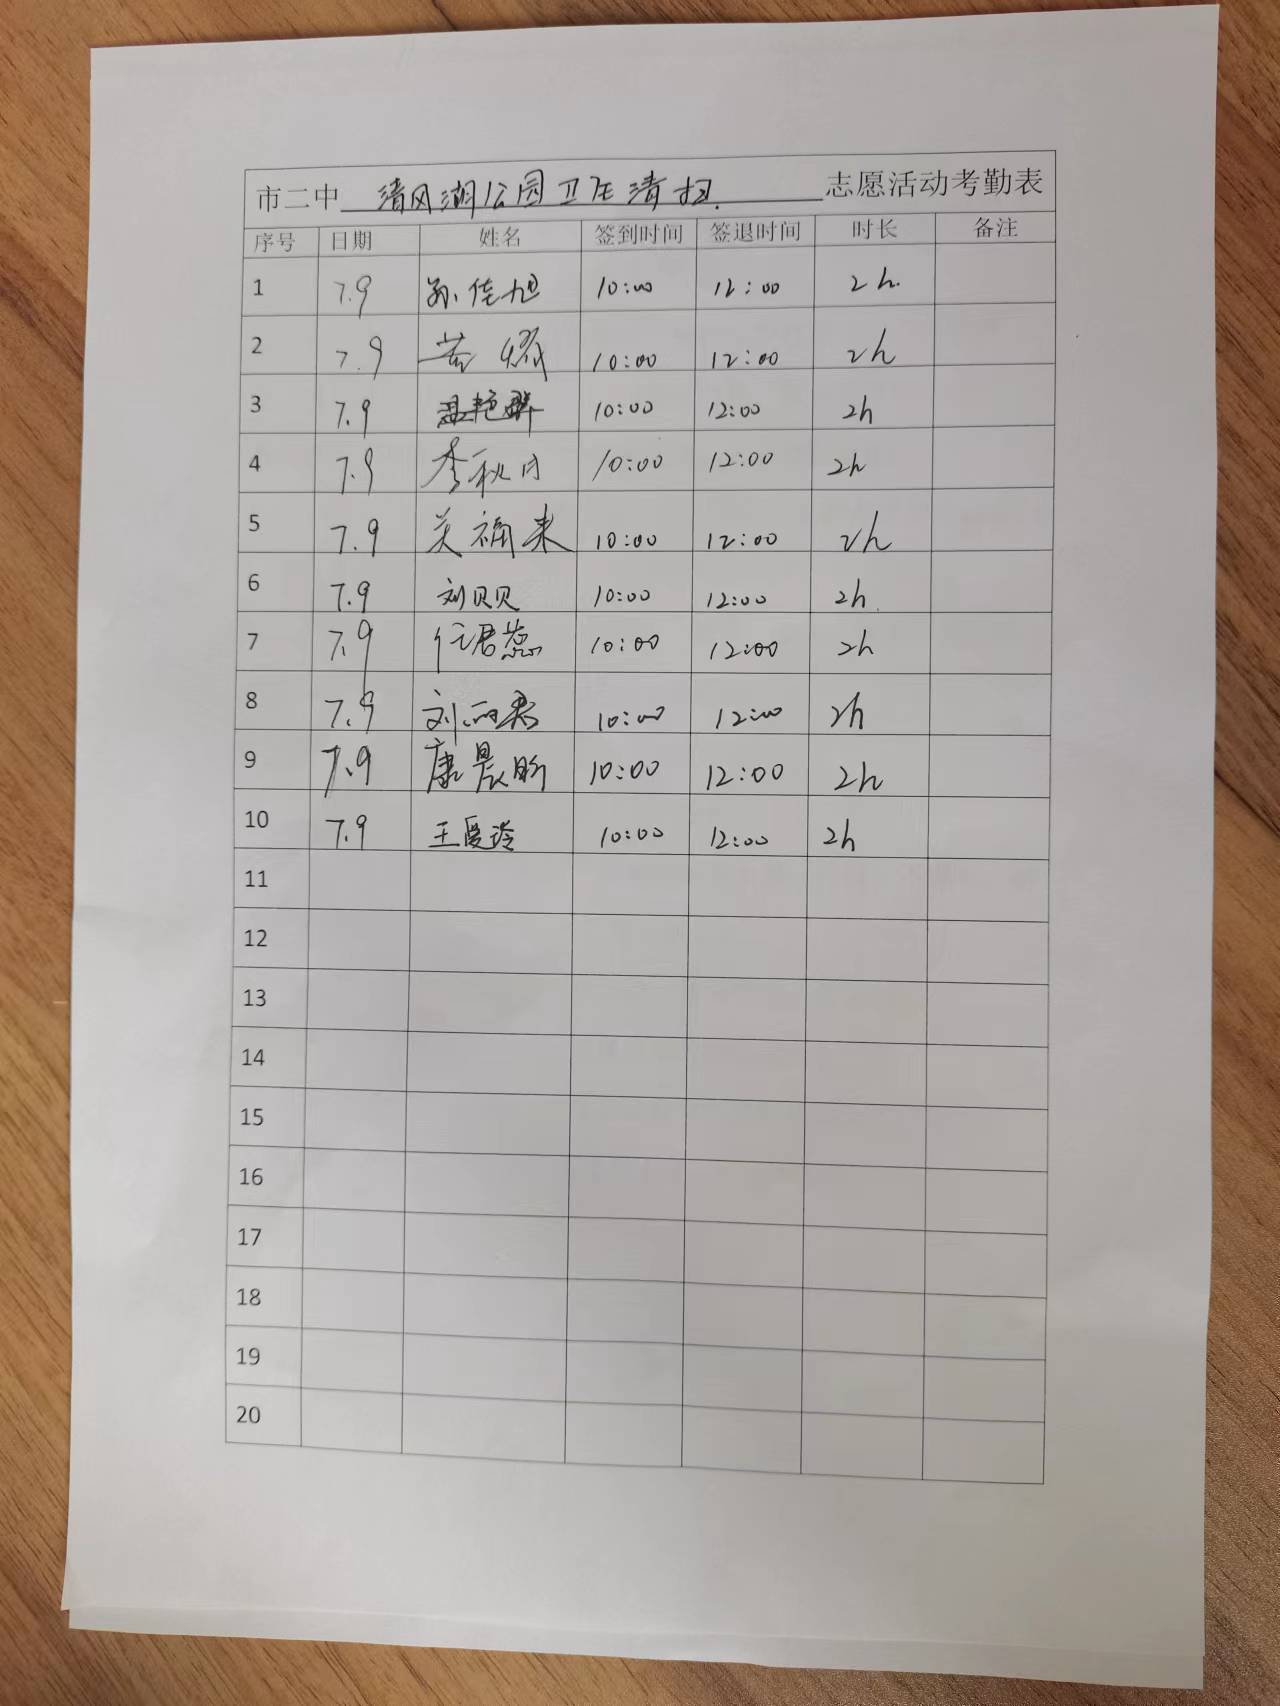 市二中 清风湖公园卫生清扫. 志愿活动考勤表
序号 日期 姓名 签到时间 签退时间 时长 备注
1 7.9 孙佳旭 10:00 12:00 2h.
2 7.9 10:00 12:00 2h
3 7.9 温艳群 10:00 12:00 2h
4 7.9 李秋月 10:00 12:00 2h
5 7.9 关福来 10:00 12:00 2h
6 7.9 刘贝贝 10:00 12:00 2h.
7 7.9 任君蕊 10:00 12:00 2h
8 7.9 刘丽君 10:00 12:00 2h
9 7.9 康晨昕 10:00 12:00 2h
10 7.9 王爱玲 10:00 12:00 2h
11
12
13
14
15
16
17
18
19
20